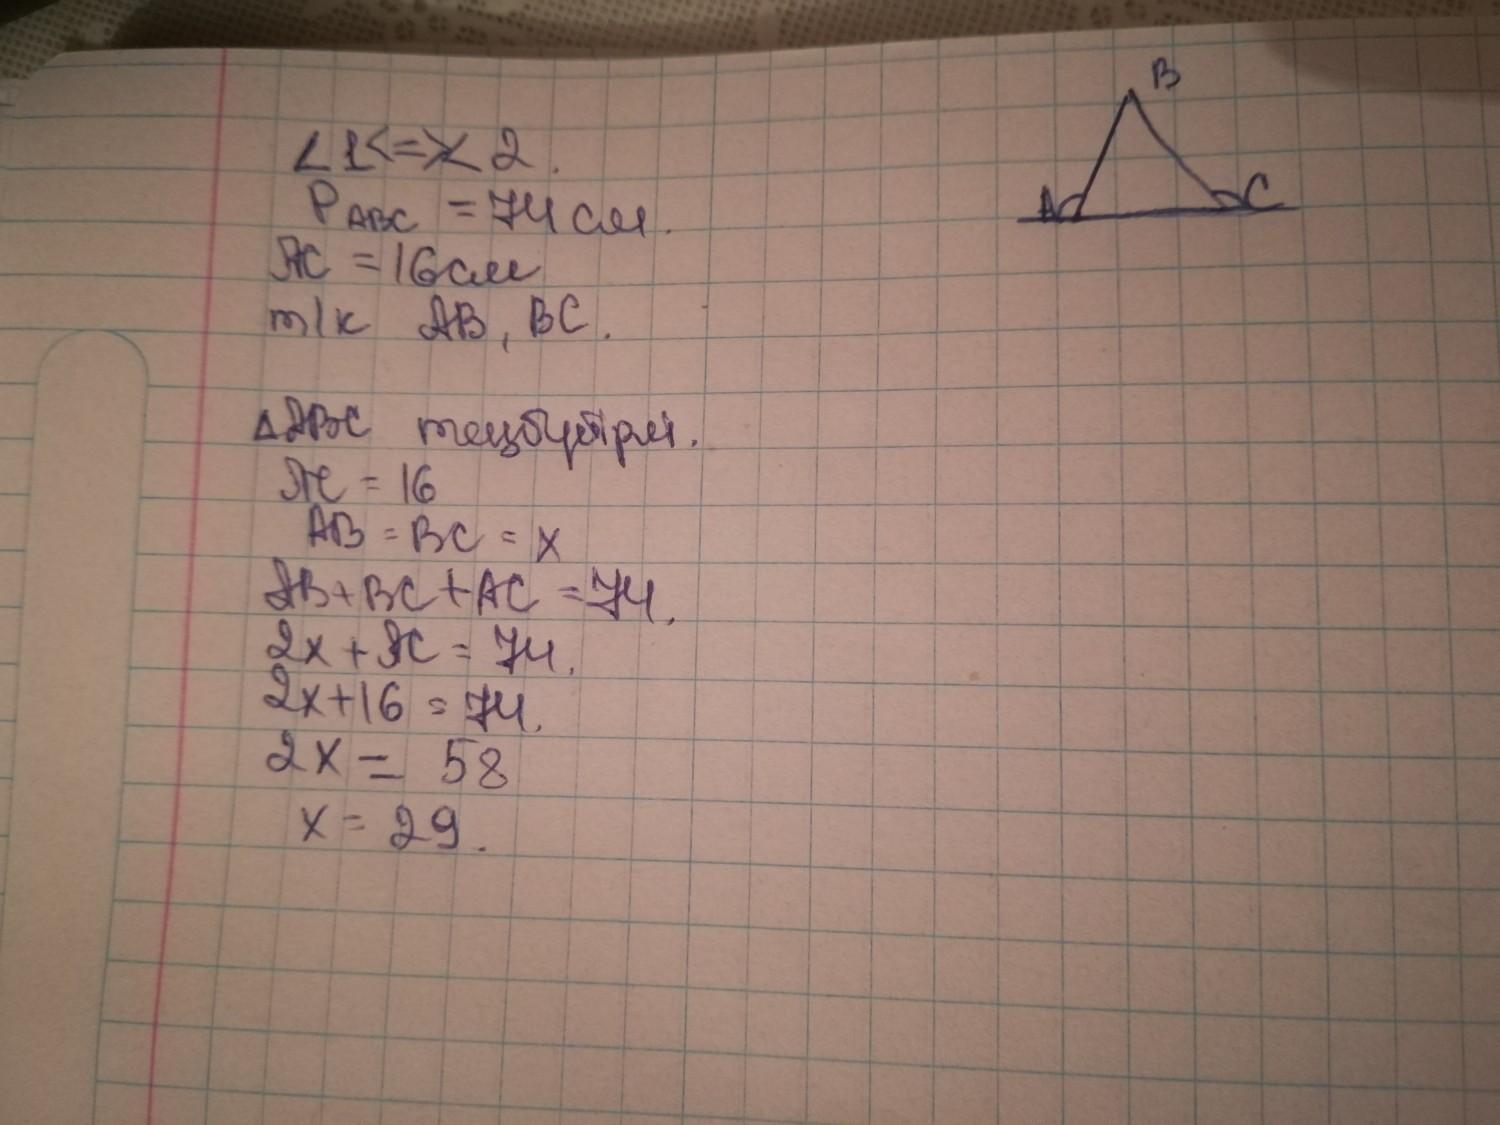 ∠1<=>∠2.
P ABC = 74 см.
AC = 16 см
т/к AB, BC.
B
A C
Δ ABC теңбүйірлі.
AC = 16
AB = BC = x
AB + BC + AC = 74.
2x + AC = 74.
2x + 16 = 74.
2x = 58
x = 29.